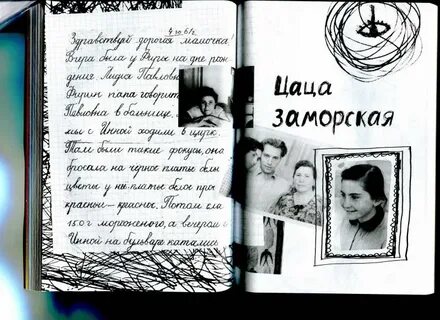 Здравствуй дорогая мамочка!
Вчера была у Фиры на дне рож
дение. Лидия Павловн
Фирин папа говорит
Павловна в больнице.
мы с Инной ходили в цирк.
Там были такие фокусы, она
бросала на чёрное платье белы
цветы у ней платье белое,
красной — красное. Потом ела
150 г мороженого, а вечером с
Инной на бульваре катались
Цаца
заморская